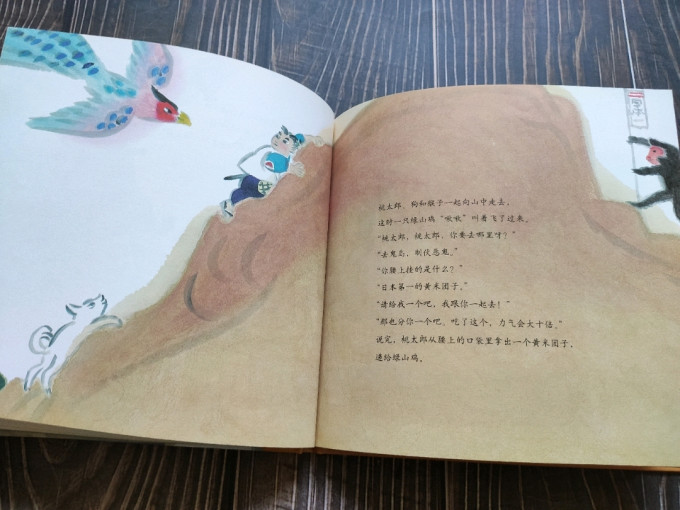 桃太郎、狗和猴子一起向山中走去，
这时一只绿山鸡“啾啾”叫着飞了过来。
“桃太郎，桃太郎，你要去哪里呀？”
“去鬼岛，制伏恶鬼。”
“你腰上挂的是什么？”
“日本第一的黄米团子。”
“请给我一个吧，我跟你一起去！”
“那也分你一个吧。吃了这个，力气会大十倍。”
说完，桃太郎从腰上的口袋里拿出一个黄米团子，
递给绿山鸡。